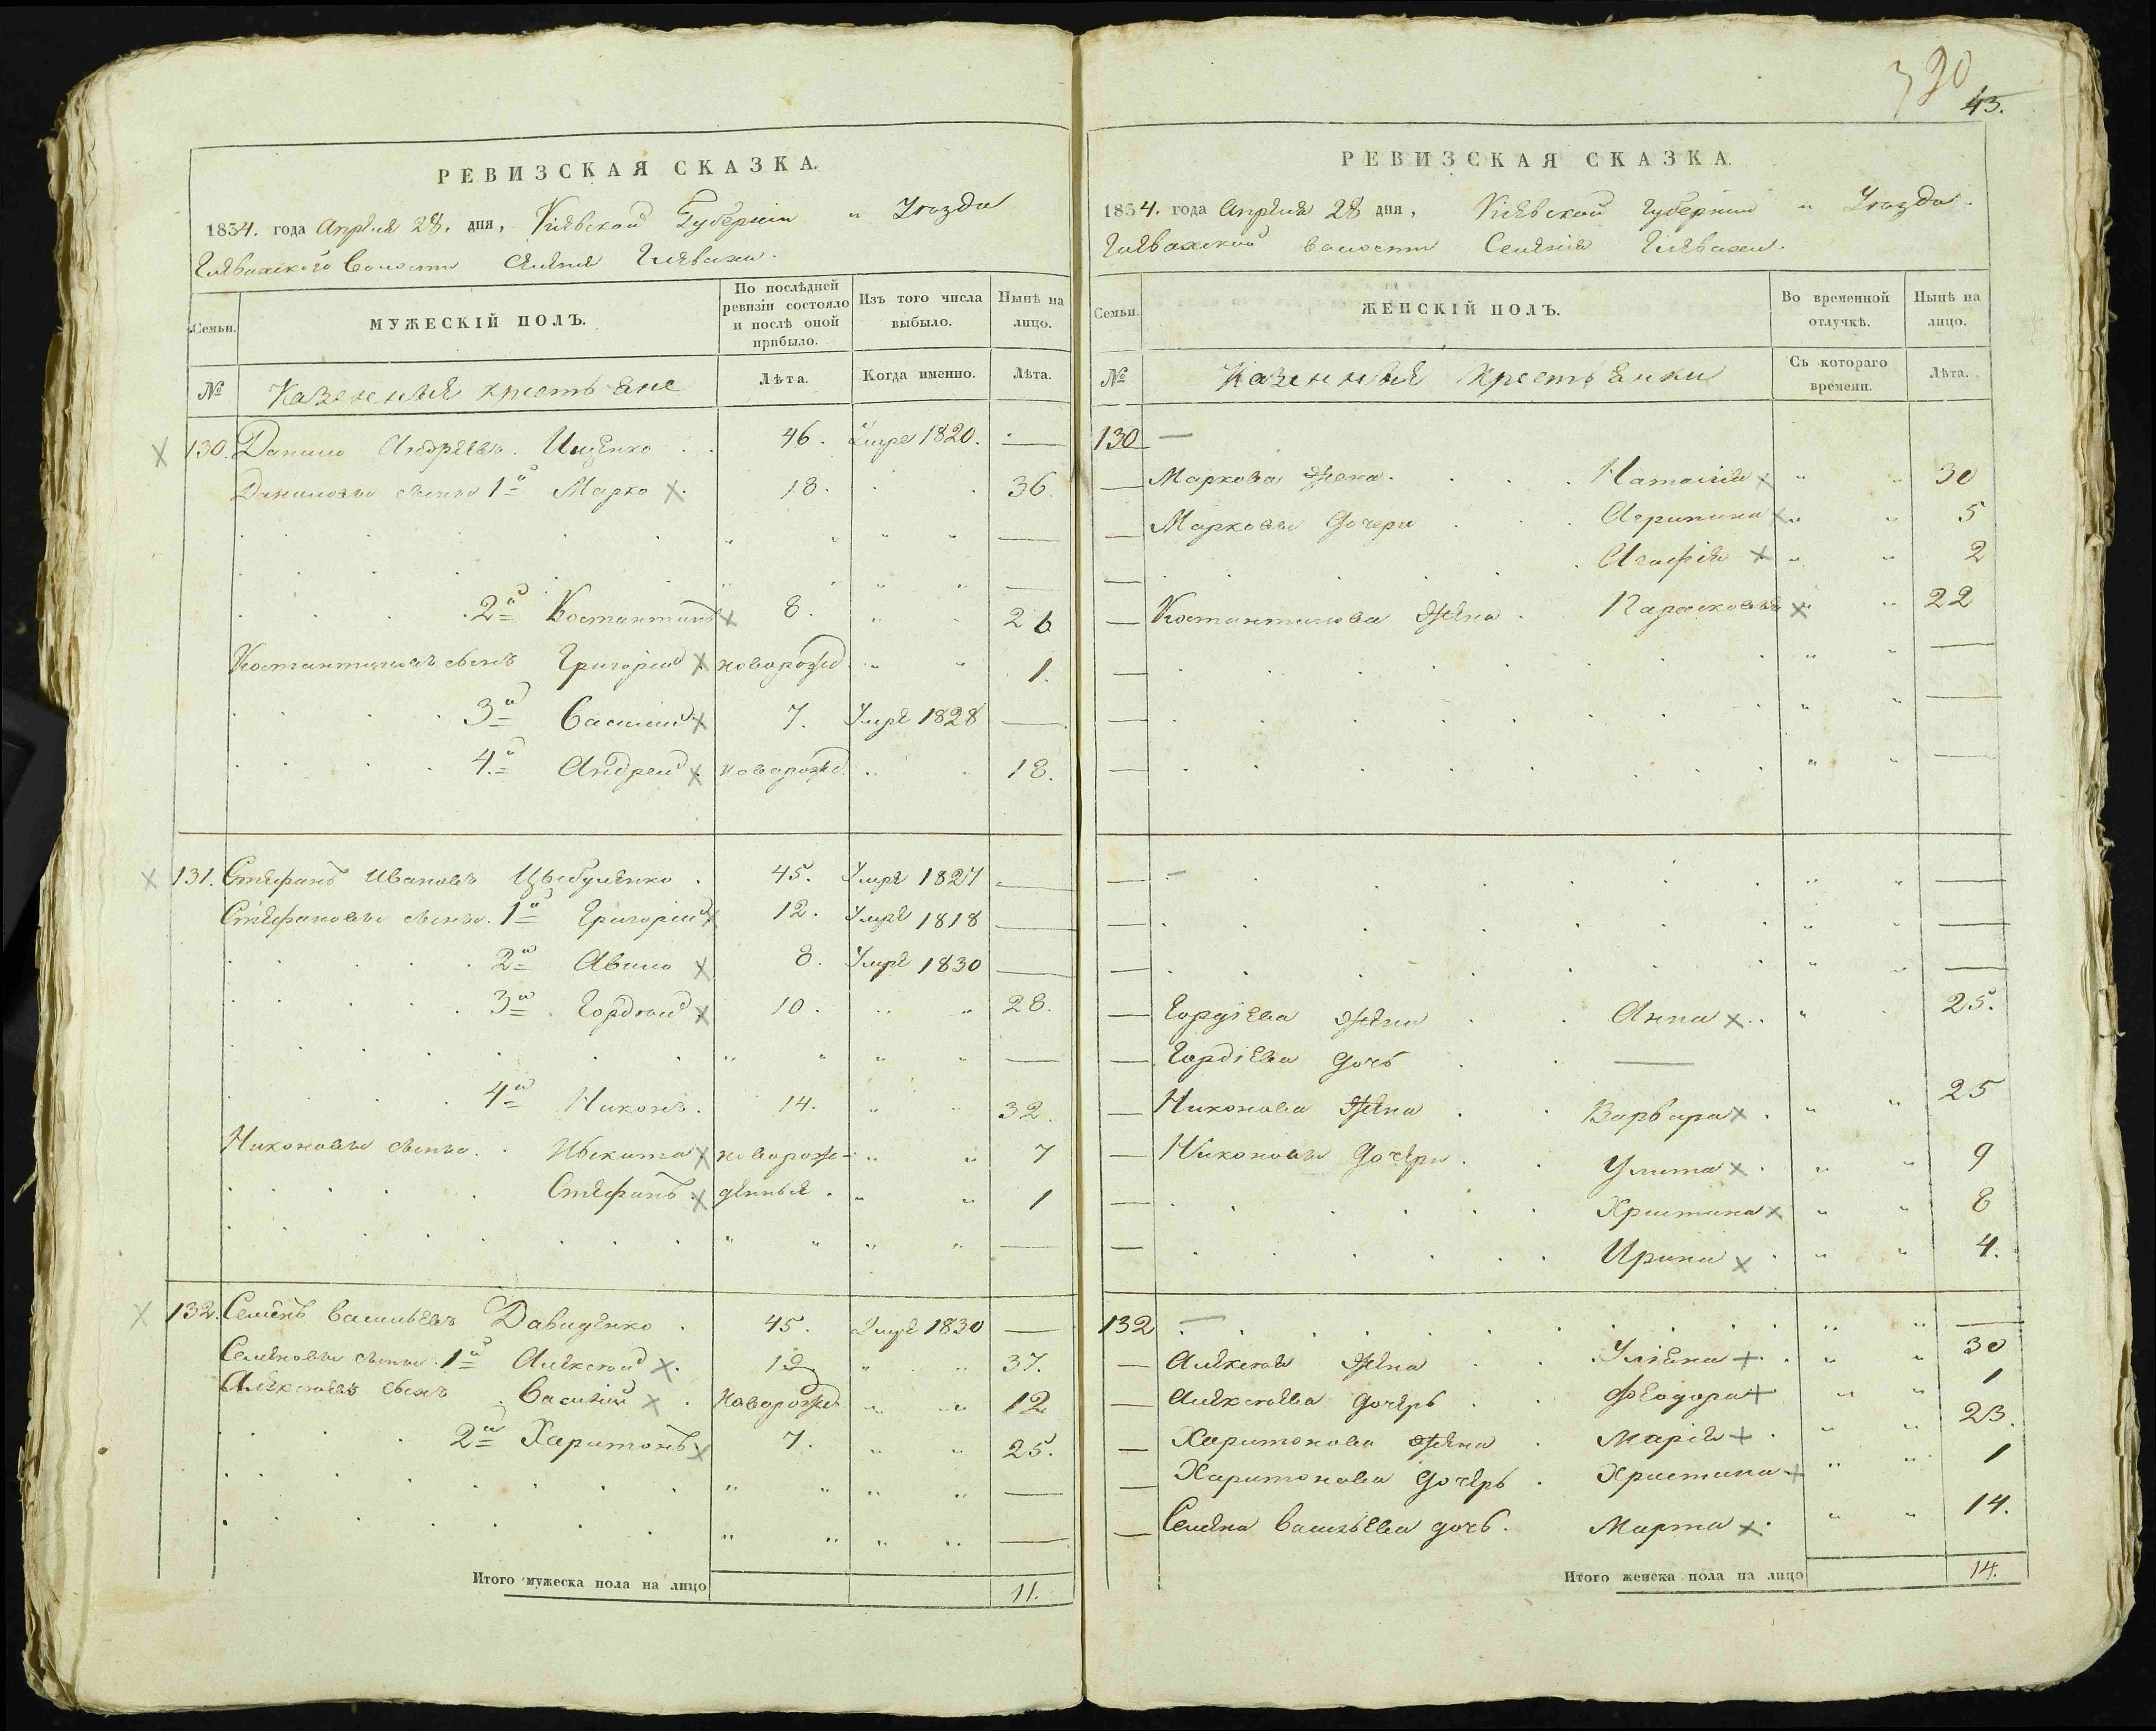 РЕВИЗСКАЯ СКАЗКА.
1834. года Апреля 28. дня, Кіевской Губерніи и Уѣзда
Глевахского Волости Селенія Глевахи.
Семьи.
МУЖЕСКІЙ ПОЛЪ.
По послѣдней ревизіи состояло и послѣ оной прибыло.
Изъ того числа выбыло.
Нынѣ на лицо.
№
Казенные крестьяне
Лѣта.
Когда именно.
Лѣта.
130. Данило Андреевъ Ищенко 46. Умре 1820. —
Даниловы сыны 1й Марко 18. 36.
2й Костантинъ 8. 26
Костантиновъ сынъ Григорій новорожд 1.
3й Василий 7. Умре 1828 —
4й Андрей новорожд. 18.
131. Стефанъ Ивановъ Цыбуленко 45. Умре 1827 —
Стефановы сыны. 1й Григорій 12. Умре 1818 —
2й Авило 8. Умре 1830 —
3й Гордѣй 10. 28.
4й Никонъ. 14. 32.
Никоновы сыны. Никита новорож- 7
Стефанъ денные. 1
132. Семенъ Васильевъ Давиденко 45. Умре 1830 —
Семеновы сыны 1й Алексѣй 19 37.
Алексѣевъ сынъ Василій новорожд 12
2й Харитонъ 7. 25.
Итого мужеска пола на лицо 11.
390
43.
РЕВИЗСКАЯ СКАЗКА.
1834. года Апреля 28 дня, Кіевской Губерніи и Уѣзда.
Глевахской волости Селенія Глевахи.
Семьи.
ЖЕНСКІЙ ПОЛЪ.
Во временной отлучкѣ.
Нынѣ на лицо.
№
Казенные Крестьянки
Съ котораго времени.
Лѣта.
130 —
Маркова жена. Наталія 30
Марковы дочери Агрипина 5
Агафія 2
Костантинова жена Парасковія 22
Гордіева жена Анна 25.
Гордіева дочь —
Никонова жена Варвара 25
Никоновы дочери Улита 9
Христина 8
Ирина 4.
132 —
Алексѣя жена Уліяна 30
Алексѣева дочерь Феодора 1
Харитонова жена Марія 23.
Харитонова дочерь Христина 1
Семена Васильева дочь. Марта 14.
Итого женска пола на лицо 14.